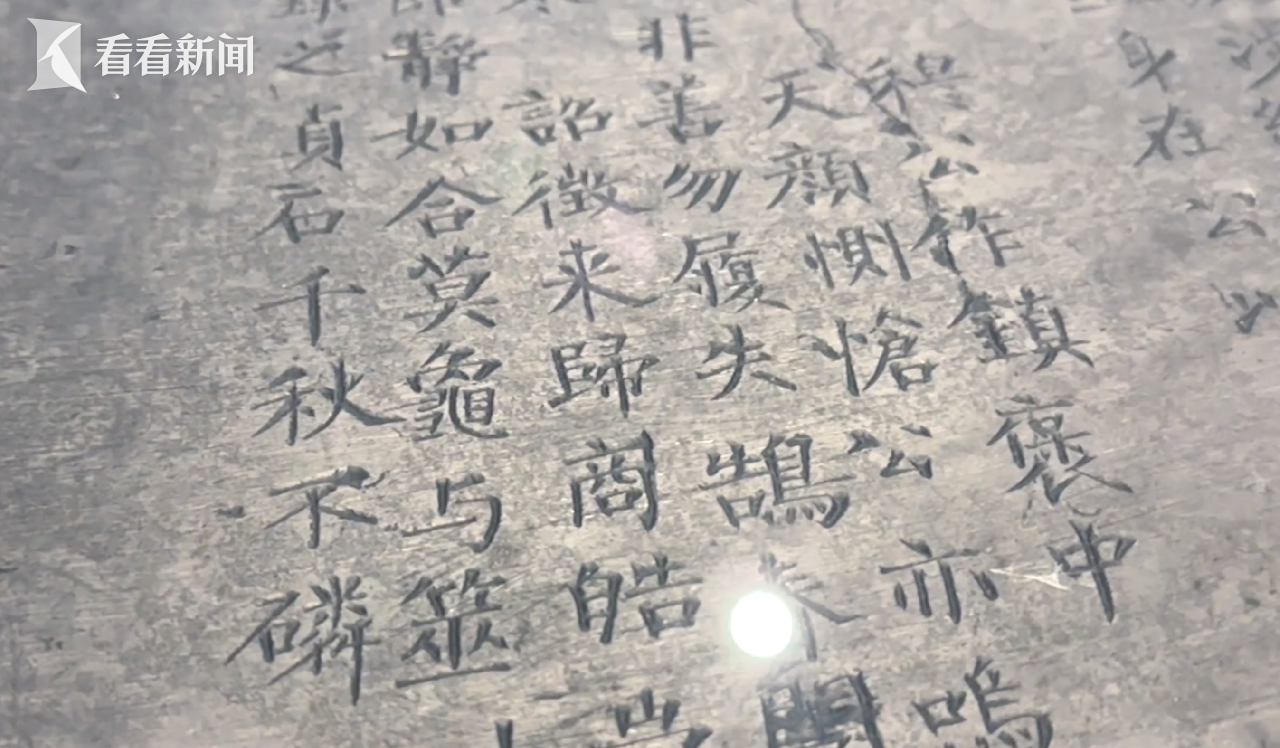 看看新闻
身在公
穆公作鎮褒中
天顏惻愴公亦嗚
非善勿履失鵠
詔徵来歸商皓
靜如合莫龜与筮
之貞石千秋不磷